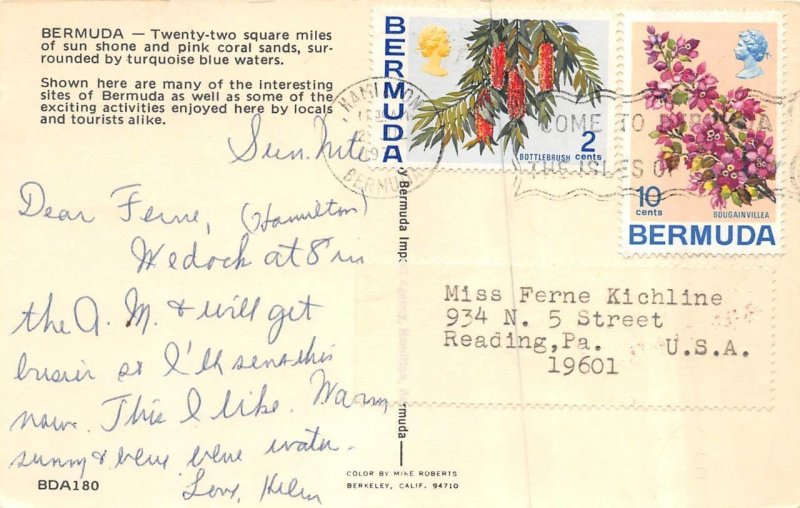 BERMUDA — Twenty-two square miles
of sun shone and pink coral sands, sur-
rounded by turquoise blue waters.
Shown here are many of the interesting
sites of Bermuda as well as some of the
exciting activities enjoyed here by locals
and tourists alike.
Sun. nite
Dear Ferne, (Hamilton)
We dock at 8 in
the A. M. & will get
busier so I'll send this
now. This I like. Warm
sunny & blue blue water.
Love, Helen
BDA180
BERMUDA
BOTTLEBRUSH
2
cents
10
cents
BOUGAINVILLEA
BERMUDA
HAMILTON
BERMUDA
COME TO BERMUDA
THE ISLES OF
Miss Ferne Kichline
934 N. 5 Street
Reading,Pa. U.S.A.
19601
y Bermuda Imp
Hamilton,
rmuda
COLOR BY MIKE ROBERTS
BERKELEY, CALIF. 94710